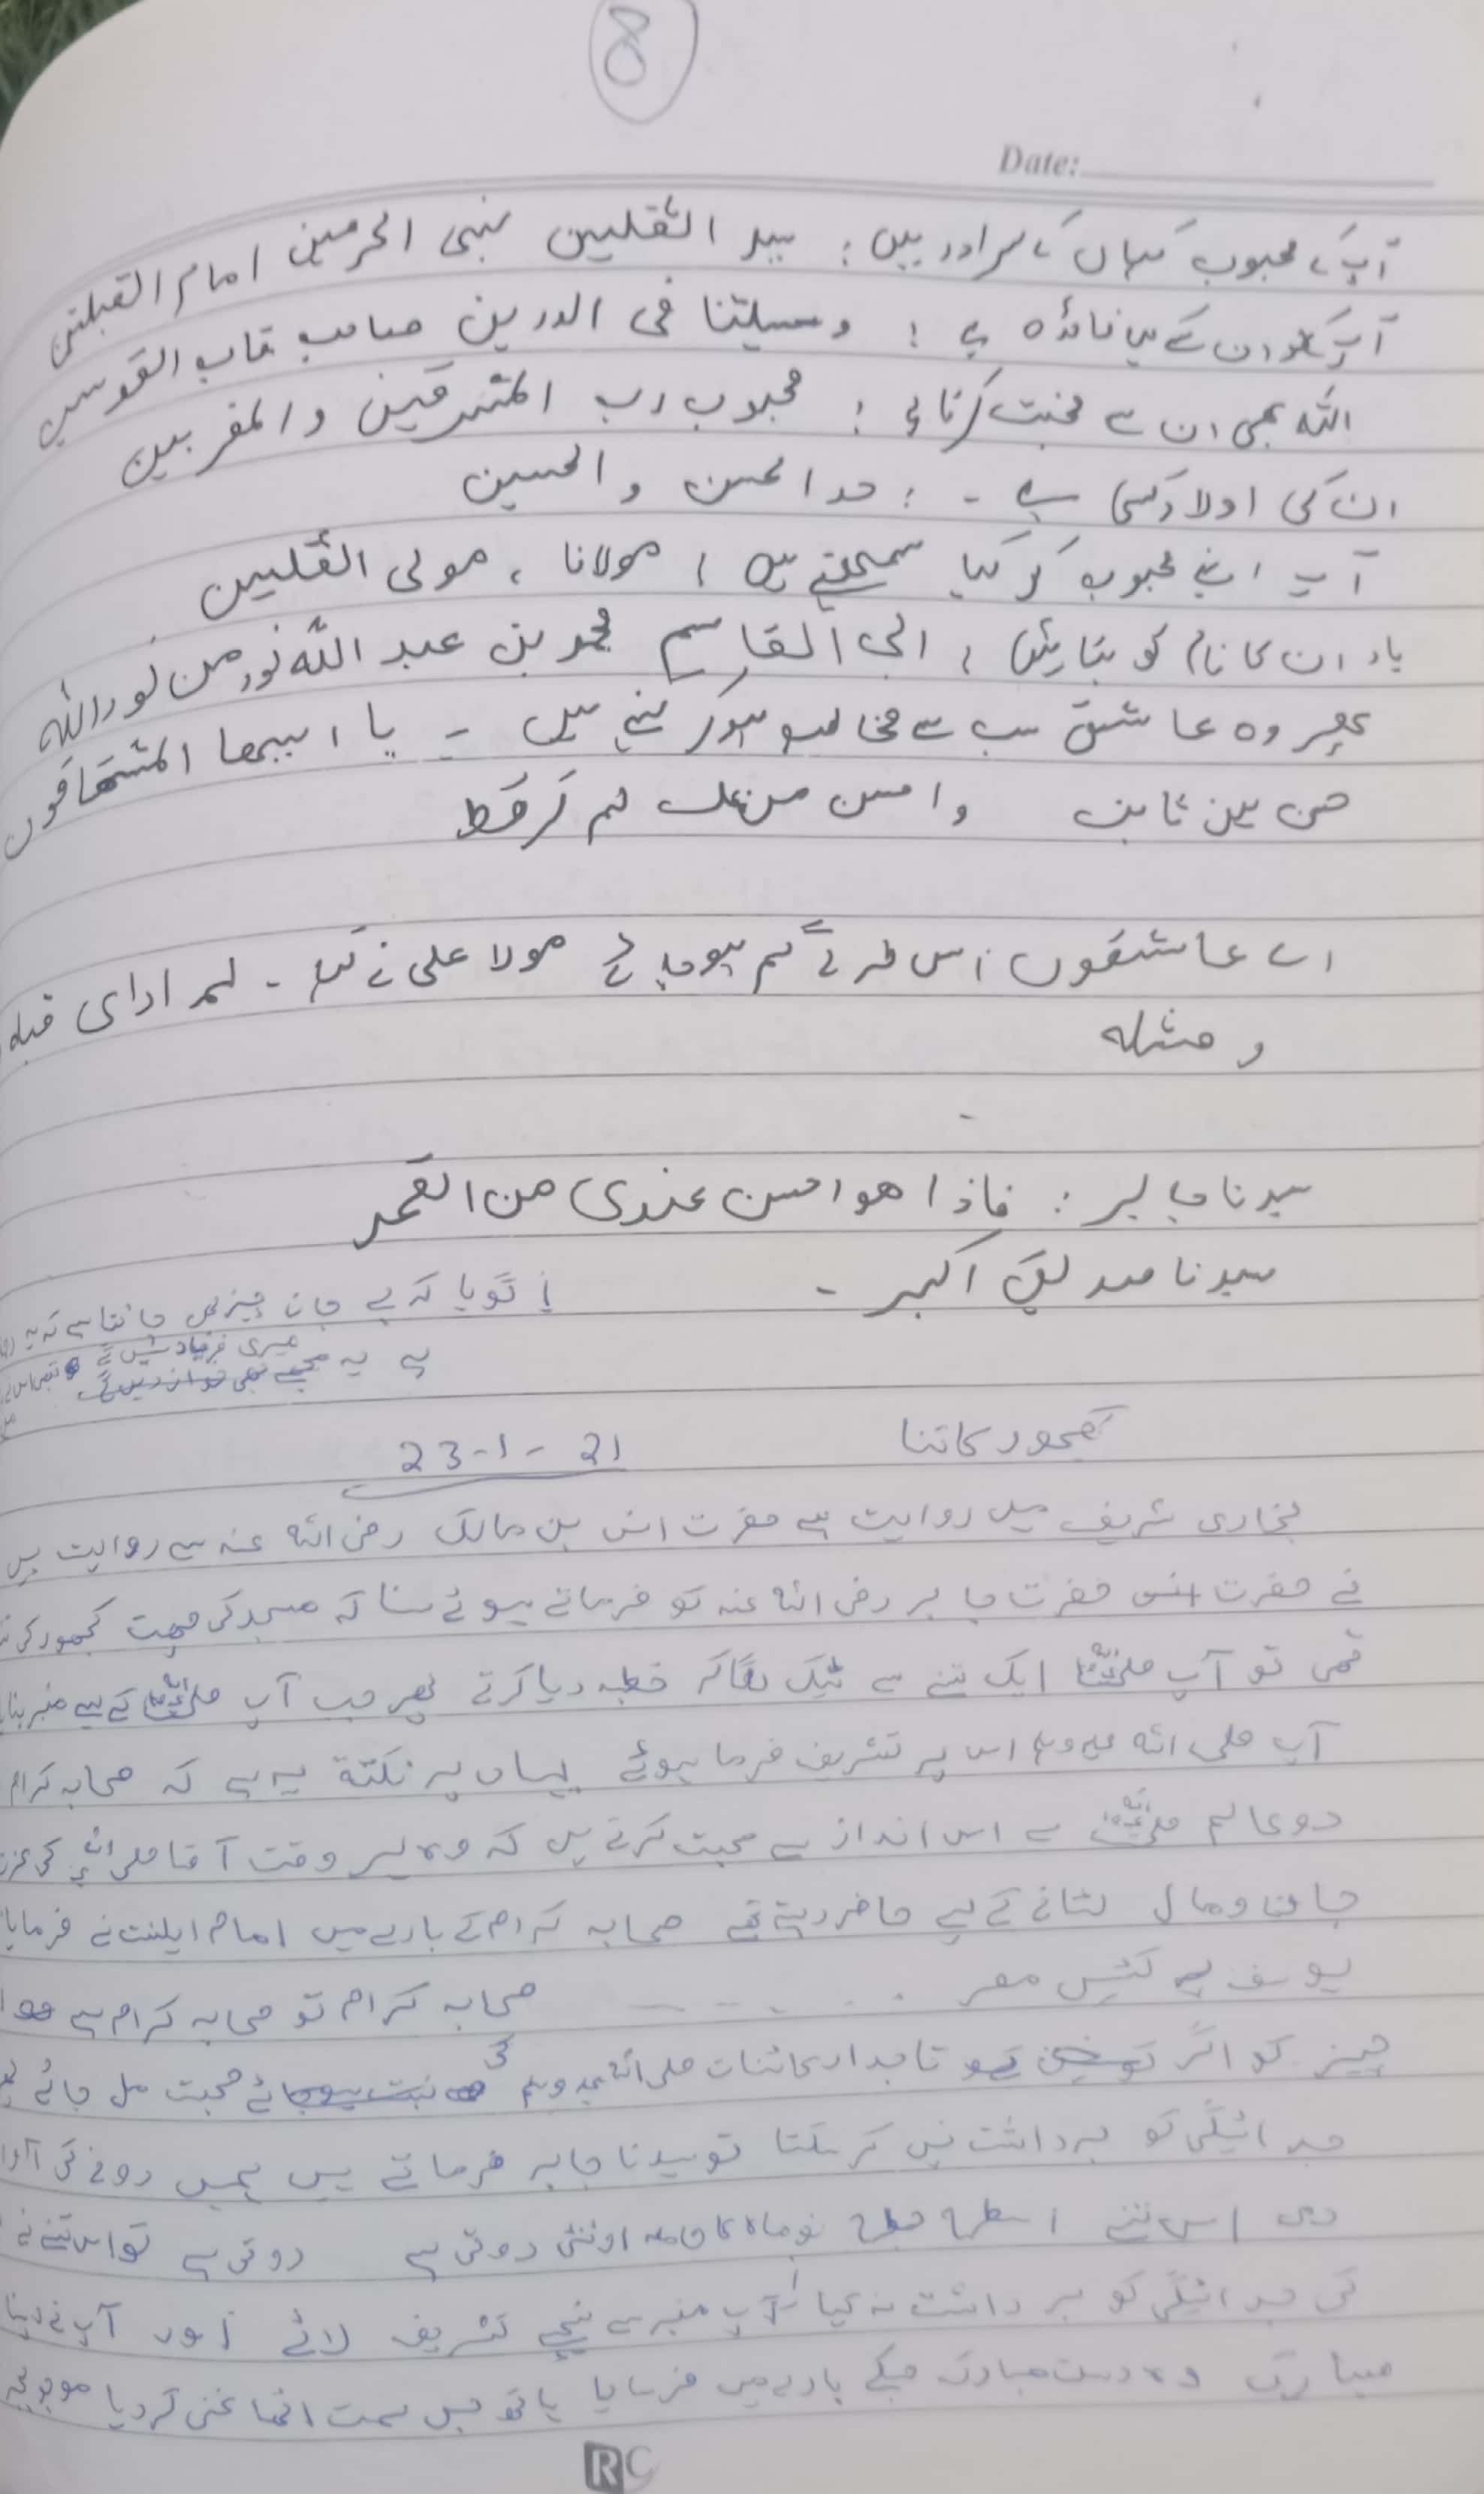 8
Date:
آپکے محبوب کہاں کے سردار ہیں : سید الثقلین نبی الحرمین امام القبلتین
آپکو ان سے کیا فائدہ ہے : وسیلتنا فی الدرین صاحب قاب القوسین
اللہ بھی ان سے محبت کرتا ہے : محبوب رب المشرقین والمغربین
ان کی اولاد کیسی ہے - : جد الحسن والحسین
آپ اپنے محبوب کو کیا سمجھتے ہیں : مولانا ، مولی الثقلین
یار ان کا نام کو بتائیں : ابی القاسم محمد بن عبد اللہ نور من نور اللہ
پھر وہ عاشق سب سے مخاطب ہوکر کہتے ہیں - یا ایہا المشتاقون
حسن بن ثابت واحسن منک لم ترقط
اے عاشقوں اس طرح گم ہوجاؤ مولا علی نے کہا - لم ارای قبلہ
ومثلہ
سیدنا جابر : فاذا ھو احسن عندی من القمر
سیدنا صدیق اکبر -
گویا کہ بے جان چیز بھی جانتا ہے کہ یہ
ہے یہ میری فریاد سنیں گے
کھجور کا تنا 23-1-21
بخاری شریف میں روایت ہے حضرت انس بن مالک رضی اللہ عنہ سے روایت ہیں
نے حضرت جابر رضی اللہ عنہ کو فرماتے ہوئے سنا کہ مسجد کی چھت کھجور کی
تھی تو آپ ﷺ ایک تنے سے ٹیک لگا کر خطبہ دیا کرتے پھر جب آپ ﷺ کے لیے منبر بنایا
آپ صلی اللہ علیہ وسلم اس پر تشریف فرما ہوئے یہاں پر نکتۃ یہ ہے کہ صحابہ کرام
دو عالم ﷺ سے اس انداز سے محبت کرتے ہیں کہ وہ ہر وقت آقا صلی اللہ کی
جان و مال لٹانے کے لیے حاضر رہتے تھے صحابہ کرام کے بارے میں امام اہلسنت نے فرمایا
یوسف پہ کٹیں مصر . . . . . صحابہ کرام تو صحابہ کرام ہے
چیز کو اگر تاجدار کائنات صلی اللہ علیہ وسلم کی صحبت مل جائے
جدائیگی کو برداشت نہیں کر سکتا تو سیدنا جابر فرماتے ہیں ہمیں رونے کی
دی اس تنے اسطرح جیطرح نوماہ کا حاملہ اونٹنی روتی ہے روتی ہے تو اس تنے نے
کی جدائیگی کو برداشت نہ کیا آپ منبر سے نیچے تشریف لائے اور آپ نے اپنا
مبارک وہ دست مبارک جسکے بارے میں فرمایا ہاتھ جس سمت اٹھا غنی کردیا
RC